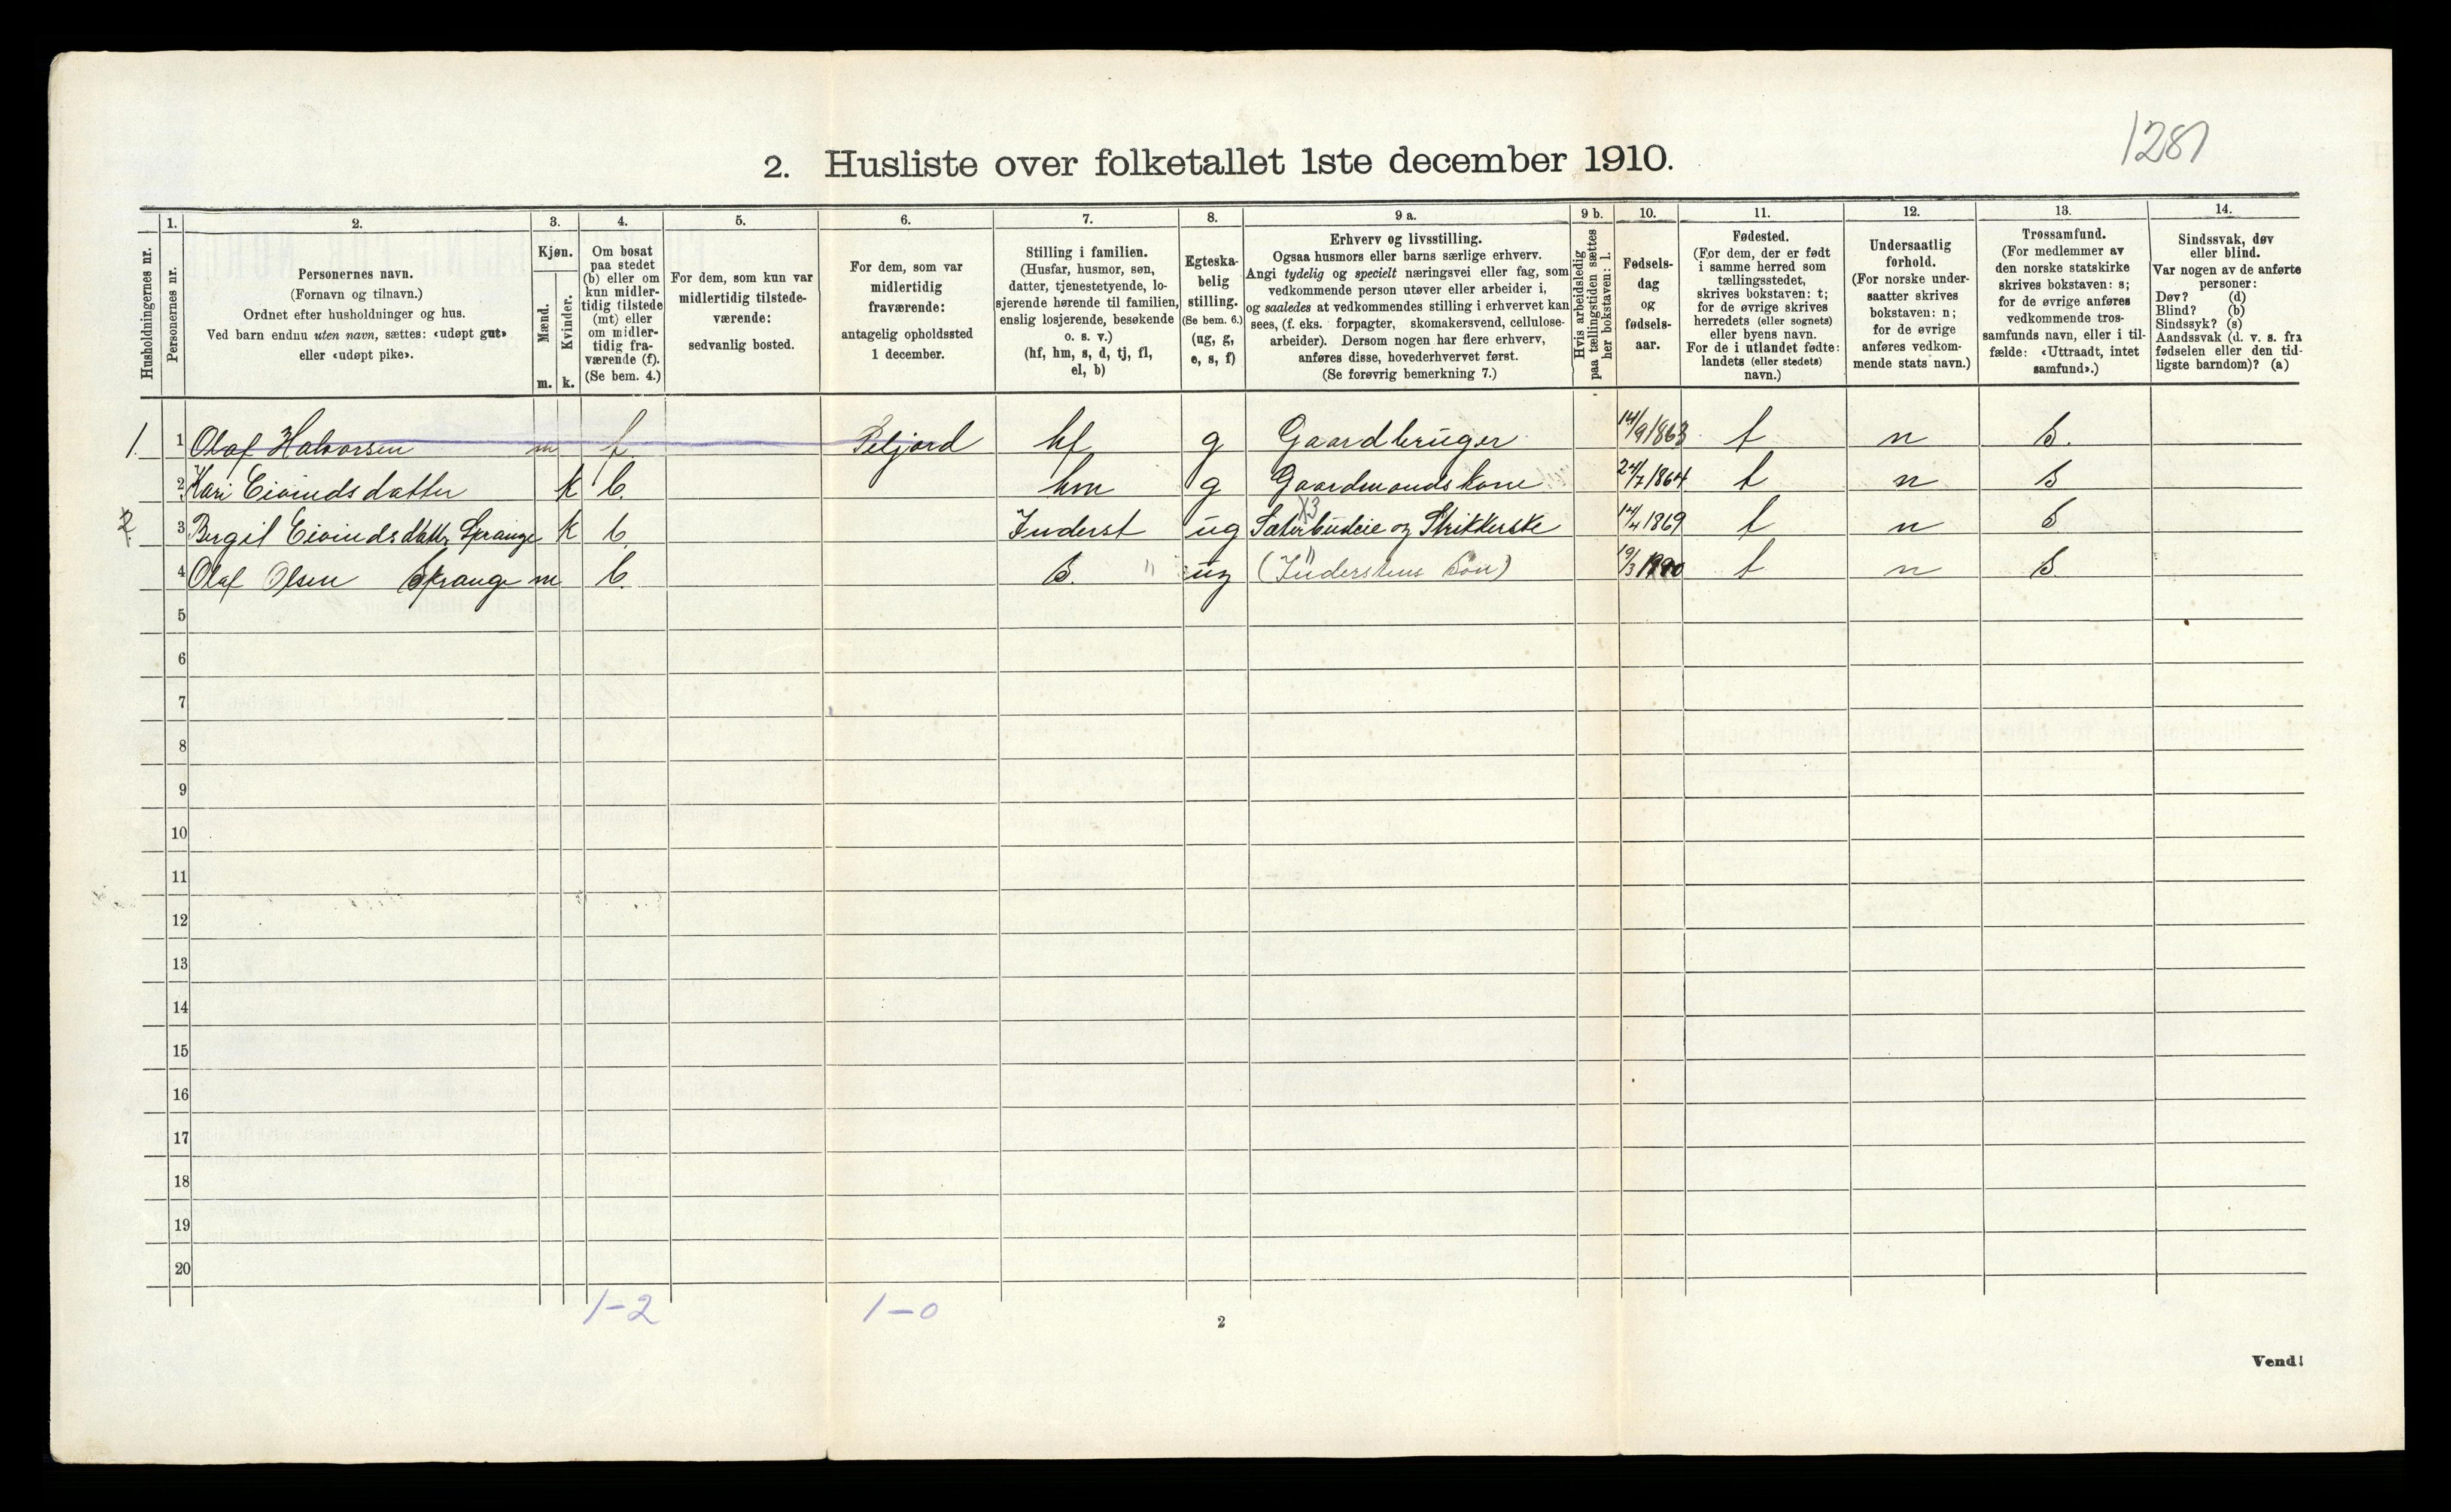 1287
2. Husliste over folketallet 1ste december 1910.
Husholdningernes nr.
1.
Personernes nr.
2.
Personernes navn.
(Fornavn og tilnavn.)
Ordnet efter husholdninger og hus.
Ved barn endnu uten navn, sættes: «udøpt gut»
eller «udøpt pike».
3.
Kjøn.
Mænd.
m.
Kvinder.
k.
4.
Om bosat
paa stedet
(b) eller om
kun midler-
tidig tilstede
(mt) eller
om midler-
tidig fra-
værende (f).
(Se bem. 4.)
5.
For dem, som kun var
midlertidig tilstede-
værende:
sedvanlig bosted.
6.
For dem, som var
midlertidig
fraværende:
antagelig opholdssted
1 december.
7.
Stilling i familien.
(Husfar, husmor, søn,
datter, tjenestetyende, lo-
sjerende hørende til familien,
enslig losjerende, besøkende
o. s. v.)
(hf, hm, s, d, tj, fl,
el, b)
8.
Egteska-
belig
stilling.
(Se bem. 6.)
(ug, g,
e, s, f)
9 a.
Erhverv og livsstilling.
Ogsaa husmors eller barns særlige erhverv.
Angi tydelig og specielt næringsvei eller fag, som
vedkommende person utøver eller arbeider i,
og saaledes at vedkommendes stilling i erhvervet kan
sees, (f. eks. forpagter, skomakersvend, cellulose-
arbeider). Dersom nogen har flere erhverv,
anføres disse, hovederhvervet først.
(Se forøvrig bemerkning 7.)
9 b.
Hvis arbeidsledig
paa tællingstiden sættes
her bokstaven: l.
10.
Fødsels-
dag
og
fødsels-
aar.
11.
Fødested.
(For dem, der er født
i samme herred som
tællingsstedet,
skrives bokstaven: t;
for de øvrige skrives
herredets (eller sognets)
eller byens navn.
For de i utlandet fødte:
landets (eller stedets)
navn.)
12.
Undersaatlig
forhold.
(For norske under-
saatter skrives
bokstaven: n;
for de øvrige
anføres vedkom-
mende stats navn.)
13.
Trossamfund.
(For medlemmer av
den norske statskirke
skrives bokstaven: s;
for de øvrige anføres
vedkommende tros-
samfunds navn, eller i til-
fælde: «Uttraadt, intet
samfund».)
14.
Sindssvak, døv
eller blind.
Var nogen av de anførte
personer:
Døv? (d)
Blind? (b)
Sindssyk? (s)
Aandssvak (d. v. s. fra
fødselen eller den tid-
ligste barndom)? (a)
1. 1 Olaf Halvorsen m f. Seljord hf g Gaardbruger 14/9 1863 t n S.
2 Kari Eivindsdatter k b. hm g Gaardmandskone 24/7 1864 t n S
2. 3 Bergit Eivindsdatter Sprange k b. Inderst ug Sæterbudeie og Strikkerske 14/4 1869 t n S
X3
4 Olaf Olsen Sprange m b. S. " ug (Inderstens Søn) 19/3 t n S.
5
6
7
8
9
10
11
12
13
14
15
16
17
18
19
20
1-2 1-0
2
Vend!